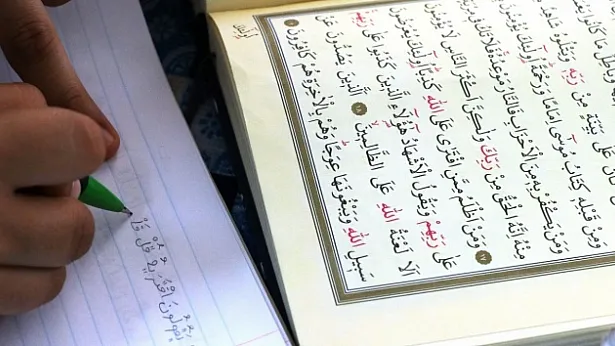 مَا كَانُوا
كَانَ عَلٰى بَيِّنَةٍ مِنْ رَبِّهِ وَيَتْلُوهُ
وَمِنْ قَبْلِهِ كِتَابُ مُوسٰٓى اِمَامًا وَرَحْمَةً اُو۬لٰٓئِكَ يُؤْمِنُونَ
وَمَنْ يَكْفُرْ بِهِ مِنَ الْاَحْزَابِ فَالنَّارُ مَوْعِدُهُ فَلَا تَكُ فِي
مِنْهُ اِنَّهُ الْحَقُّ مِنْ رَبِّكَ وَلٰكِنَّ اَكْثَرَ النَّاسِ لَا يُؤْمِنُونَ
١٧ وَمَنْ اَظْلَمُ مِمَّنِ افْتَرٰى عَلَى اللّٰهِ كَذِبًا اُو۬لٰٓئِكَ يُعْرَضُونَ
عَلٰى رَبِّهِمْ وَيَقُولُ الْاَشْهَادُ هٰٓؤُلَٓاءِ الَّذِينَ كَذَبُوا عَلٰى رَبِّهِمْ
اَلَا لَعْنَةُ اللّٰهِ عَلَى الظَّالِمِينَ ١٨ اَلَّذِينَ يَصُدُّونَ عَنْ
سَبِيلِ اللّٰهِ وَيَبْغُونَهَا عِوَجًا وَهُمْ بِالْاٰخِرَةِ هُمْ كَافِرُونَ ١٩
يَقُولُونَ افْتَرٰيهُ قُلْ